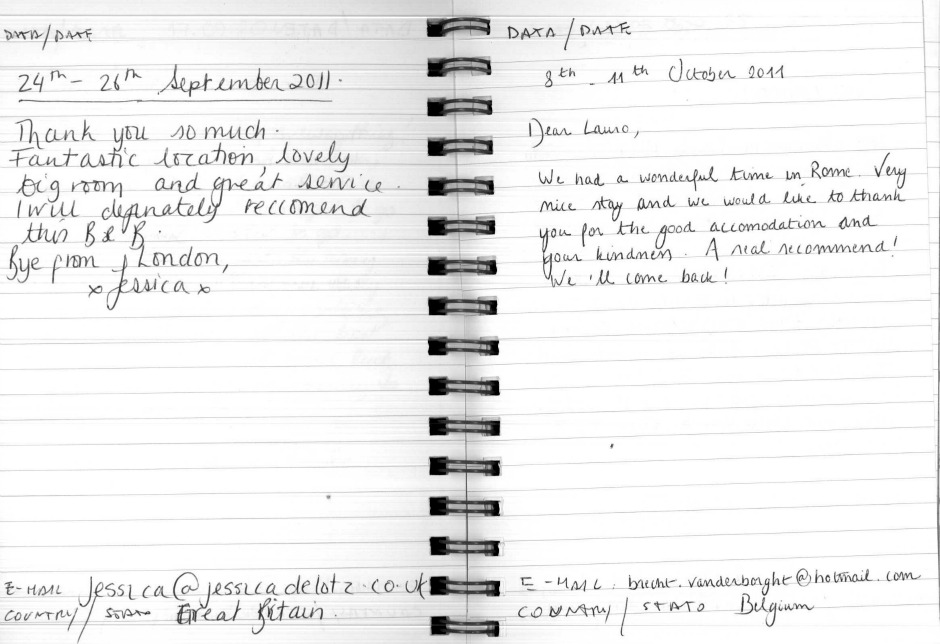 DATA/DATE
24th - 26th September 2011.
Thank you so much.
Fantastic location, lovely
big room and great service.
I will definately reccomend
this B & B.
Bye from London,
x Jessica x
E-MAIL Jessica@jessicadelotz.co.uk
COUNTRY/ STATO Great Britain.
DATA/DATE
8th - 11th October 2011
Dear Lauro,
We had a wonderful time in Rome. Very
nice stay and we would like to thank
you for the good accomodation and
your kindness. A real recommend!
We 'll come back!
E-MAIL. brecht.vanderborght@hotmail.com
COUNTRY/ STATO Belgium